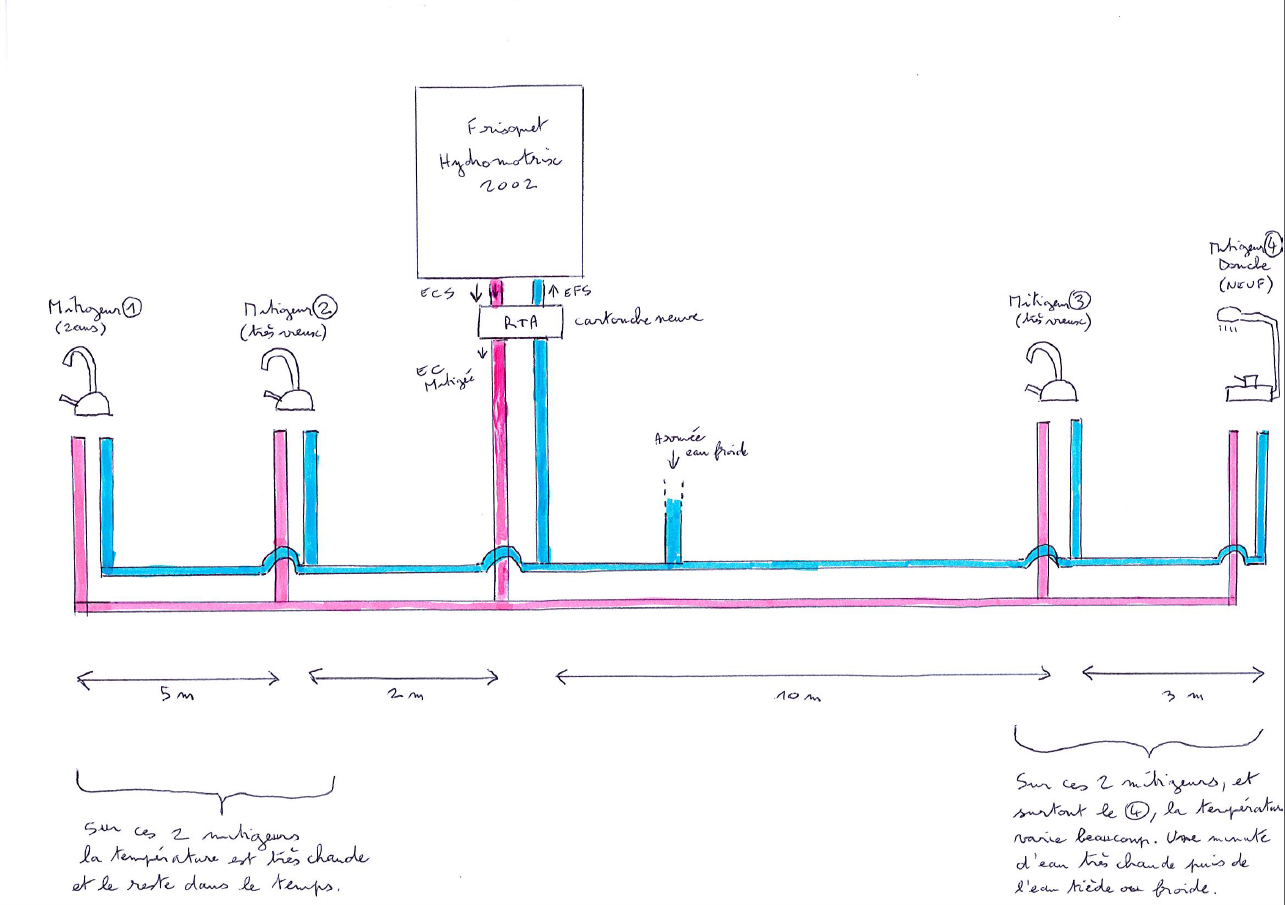 Frisquet
Hydromotrix
2002
Mitigeur 4
Douche
(NEUF)
ECS
EFS
Mitigeur 1
(2ans)
Mitigeur 2
(très vieux)
RTA
cartouche neuve
Mitigeur 3
(très vieux)
EC
Mitigée
Arrivée
eau froide
5 m
2 m
10 m
3 m
Sur ces 2 mitigeurs
la température est très chaude
et le reste dans le temps.
Sur ces 2 mitigeurs, et
surtout le 4, la température
varie beaucoup. Une minute
d'eau très chaude puis de
l'eau tiède ou froide.